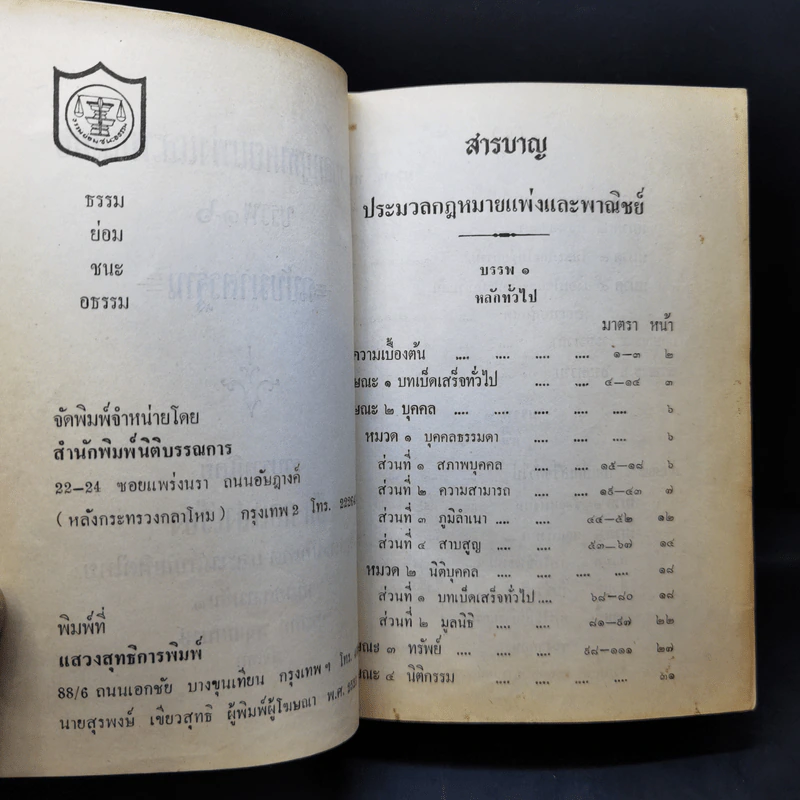 ธรรม
ย่อม
ชนะ
อธรรม
จัดพิมพ์จำหน่ายโดย
สำนักพิมพ์นิติบรรณการ
22–24 ซอยแพร่งนรา ถนนอัษฎางค์
(หลังกระทรวงกลาโหม) กรุงเทพ 2 โทร.
พิมพ์ที่
แสวงสุทธิการพิมพ์
88/6 ถนนเอกชัย บางขุนเทียน กรุงเทพฯ โทร.
นายสุรพงษ์ เขียวสุทธิ ผู้พิมพ์ผู้โฆษณา พ.ศ.
สารบาญ
ประมวลกฎหมายแพ่งและพาณิชย์
บรรพ ๑
หลักทั่วไป
มาตรา หน้า
ความเบื้องต้น .... .... .... .... ๑–๓ ๒
ษณะ ๑ บทเบ็ดเสร็จทั่วไป .... .... ๔–๑๔ ๓
ษณะ ๒ บุคคล .... .... .... .... .... .... ๖
หมวด ๑ บุคคลธรรมดา
ส่วนที่ ๑ สภาพบุคคล .... .... ๑๕–๑๘ ๖
ส่วนที่ ๒ ความสามารถ .... .... ๑๙–๔๓ ๗
ส่วนที่ ๓ ภูมิลำเนา .... .... .... ๔๔–๕๒ ๑๒
ส่วนที่ ๔ สาบสูญ .... .... .... ๕๓–๖๗ ๑๔
หมวด ๒ นิติบุคคล .... .... .... .... ๑๘
ส่วนที่ ๑ บทเบ็ดเสร็จทั่วไป .... .... ๖๘–๘๐ ๑๘
ส่วนที่ ๒ มูลนิธิ .... .... .... ๘๑–๙๗ ๒๒
ษณะ ๓ ทรัพย์ .... .... .... .... ๙๘–๑๑๑ ๒๗
ษณะ ๔ นิติกรรม .... .... .... .... ๓๑